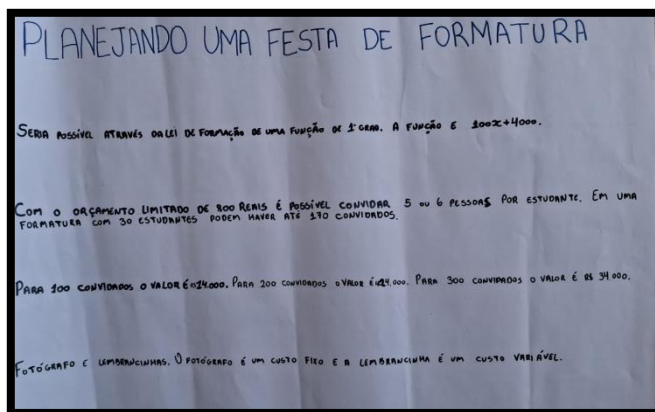 PLANEJANDO UMA FESTA DE FORMATURA
SERIA POSSÍVEL ATRAVÉS DA LEI DE FORMAÇÃO DE UMA FUNÇÃO DE 1º GRAU. A FUNÇÃO É 100x+4000.
COM O ORÇAMENTO LIMITADO DE 800 REAIS É POSSÍVEL CONVIDAR 5 OU 6 PESSOAS POR ESTUDANTE. EM UMA
FORMATURA COM 30 ESTUDANTES PODEM HAVER ATÉ 170 CONVIDADOS.
PARA 100 CONVIDADOS O VALOR É R$14.000. PARA 200 CONVIDADOS O VALOR É R$24.000. PARA 300 CONVIDADOS O VALOR É R$ 34.000.
FOTÓGRAFO E LEMBRANCINHAS. O FOTÓGRAFO É UM CUSTO FIXO E A LEMBRANCINHA É UM CUSTO VARIÁVEL.